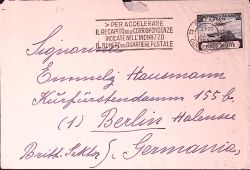 > PER ACCELERARE
IL RECAPITO DELLE CORRISPONDENZE
INDICATE NELL'INDIRIZZO
IL NUMERO DEL QUARTIERE POSTALE
Signora
Emmely Hausmann
Kurfürstendamm 155 b,
(1) Berlin Halensee
Britt. Sektor), Germania.